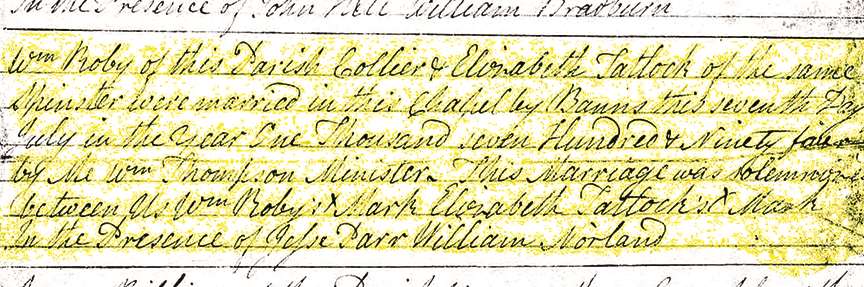 In the Presence of John Hell William Bradburn
Wm Roby of this Parish Collier & Elizabeth Tatlock of the same
Spinster were married in this Chapel by Banns this seventh Day
July in the Year One Thousand seven Hundred & Ninety four
by Me Wm Thompson Minister. This Marriage was solemnized
between Us Wm Roby's X Mark Elizabeth Tatlock's X Mark
In the Presence of Jesse Darr William Norland